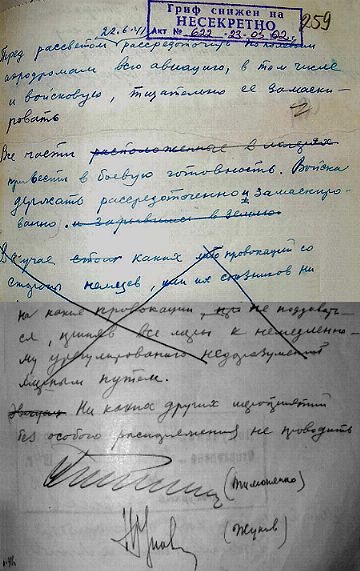 Гриф снижен на
НЕСЕКРЕТНО
Акт № 622 23-05 02 г.
259
22.6.41
Перед рассветом рассредоточить по полевым
аэродромам всю авиацию, в том числе
и войсковую, тщательно ее замаски-
ровать
Все части расположенные в лагерях
привести в боевую готовность. Войска
держать рассредоточенно и замаскиро-
ванно и зарывшись в землю
В случае каких либо провокаций со
стороны немцев, или их союзников ни
на какие провокации, не поддавать-
ся, приняв все меры к немедленно-
му урегулированию недоразумений
мирным путем.
Никаких других мероприятий
без особого распоряжения не проводить
(Тимошенко)
(Жуков)